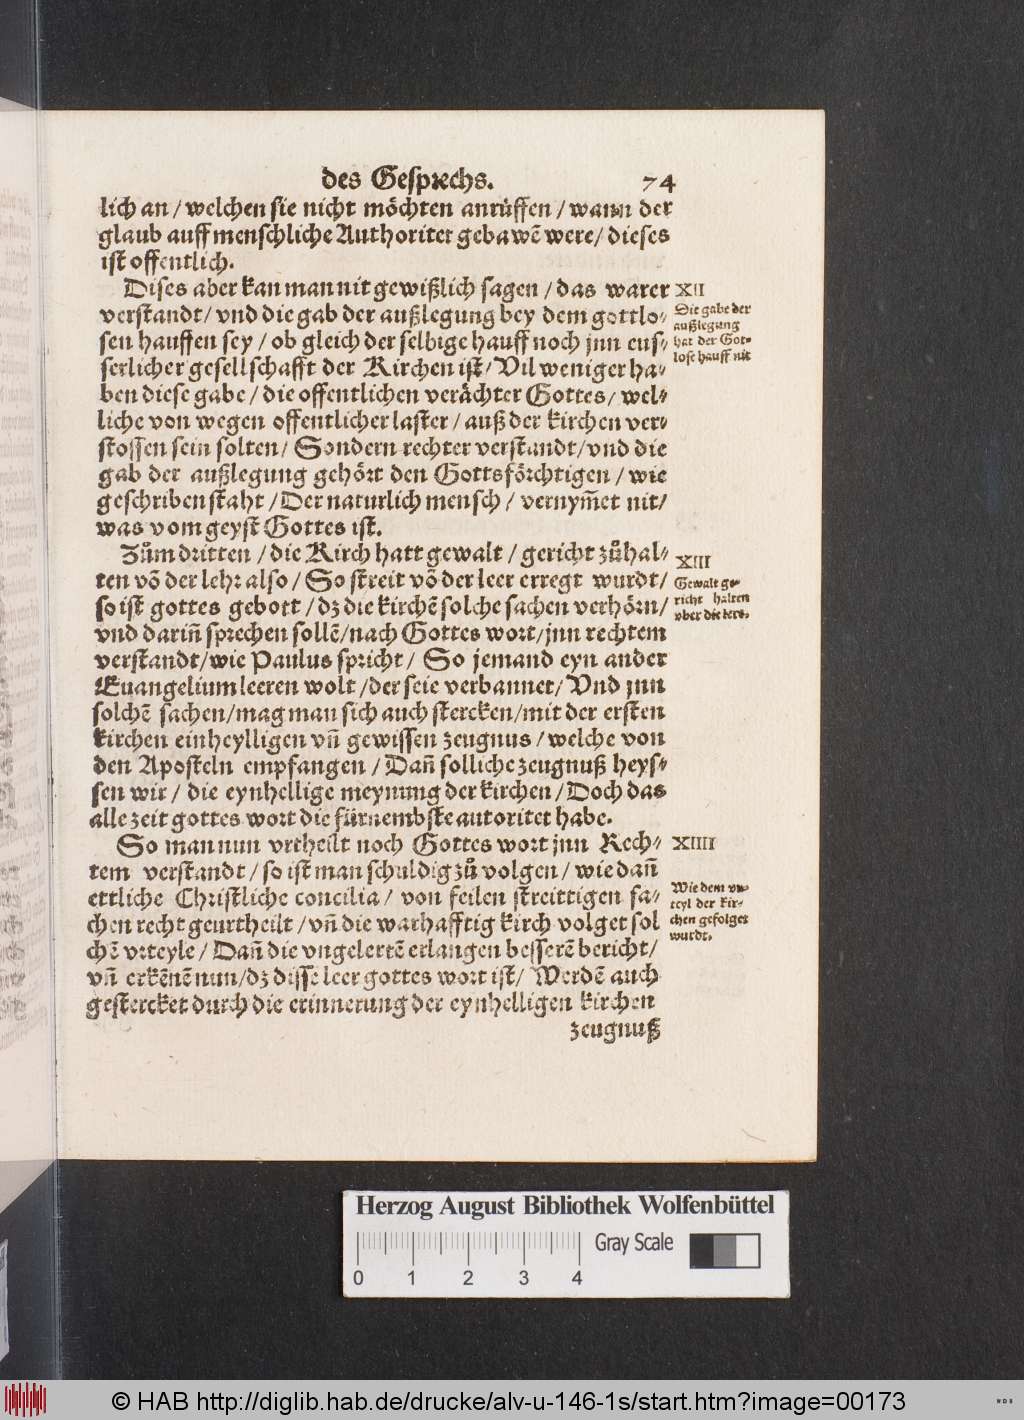 des Gesprechs. 74
lich an / welchen sie nicht möchten anrüffen / wann der
glaub auff menschliche Authoritet gebawē were / dieses
ist offentlich.
Dises aber kan man nit gewißlich sagen / das warer XII
verstandt / vnd die gab der außlegung bey dem gottlo⸗
sen hauffen sey / ob gleich der selbige hauff noch jnn eus⸗
serlicher gesellschafft der Kirchen ist / Vil weniger ha⸗
ben diese gabe / die offentlichen verächter Gottes / wel⸗
liche von wegen offentlicher laster / auß der kirchen ver⸗
stossen sein solten / Sondern rechter verstandt / vnd die
gab der außlegung gehört den Gottsförchtigen / wie
geschriben staht / Der naturlich mensch / vernym̄et nit /
was vom geyst Gottes ist.
Die gabe der
außlegung
hat der Got⸗
lose hauff nit
Zům dritten / die Kirch hatt gewalt / gericht zůhal⸗
ten vō der lehr also / So streit vō der leer erregt wurdt /
so ist gottes gebott / dz die kirchē solche sachen verhörn /
vnd darin̄ sprechen sollē / nach Gottes wort / jnn rechtem
verstandt / wie Paulus spricht / So jemand eyn ander
Euangelium leeren wolt / der seie verbannet / Vnd jnn
solchē sachen / mag man sich auch stercken / mit der ersten
kirchen einheylligen vn̄ gewissen zeugnus / welche von
den Aposteln empfangen / Dan̄ solliche zeugnuß heys⸗
sen wir / die eynhellige meynung der kirchen / Doch das
alle zeit gottes wort die fürnembste autoritet habe.
XIII
Gewalt ge⸗
richt halten
vber die lere.
So man nun vrtheilt noch Gottes wort jnn Rech⸗ XIIII
tem verstandt / so ist man schuldig zů volgen / wie dan̄
ettliche Christliche concilia / von feilen streittigen sa⸗
chen recht geurtheilt / vn̄ die warhafftig kirch volget sol
chē vrteyle / Dan̄ die vngelertē erlangen besserē bericht /
vn̄ erkēnē nun / dz disse leer gottes wort ist / Werdē auch
gestercket durch die erinnerung der eynhelligen kirchen
zeugnuß
Wie dem vr⸗
teyl der kir⸗
chen gefolget
wurdt.
Herzog August Bibliothek Wolfenbüttel
Gray Scale
0 1 2 3 4
© HAB http://diglib.hab.de/drucke/alv-u-146-1s/start.htm?image=00173